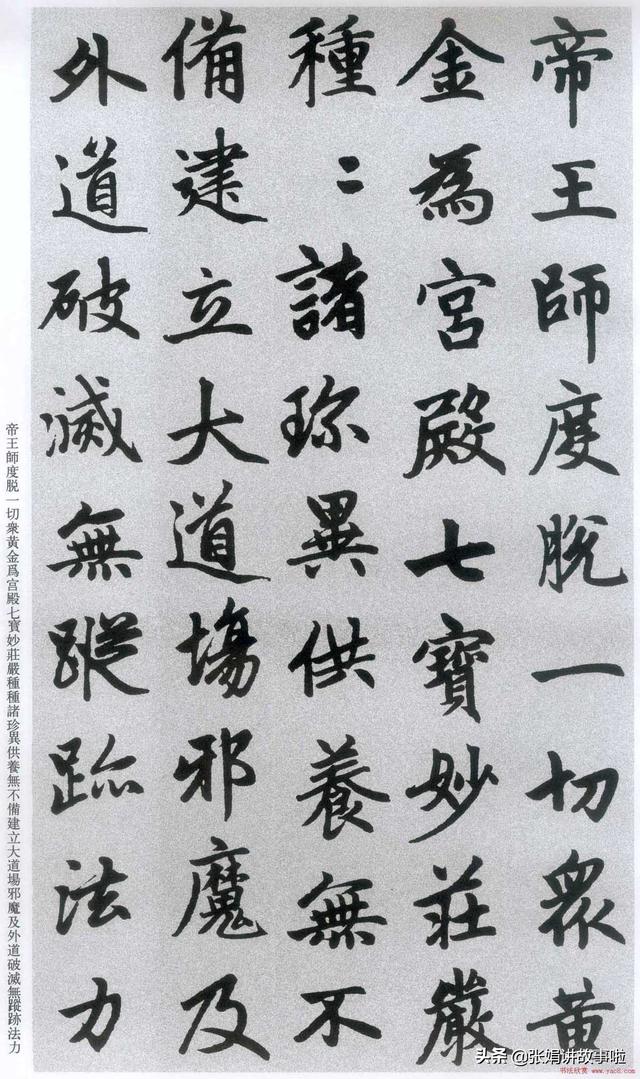 帝王師度脫一切衆黄
金為宮殿七寶妙莊嚴
種〻諸珎異供養無不
備建立大道場邪魔及
外道破滅無蹤跡法力
帝王師度脱一切衆黄金爲宫殿七寶妙莊嚴種種諸珍異供養無不備建立大道場邪魔及外道破滅無蹤跡法力
头条@张娟讲故事啦
书法欣赏 www.yac8.com